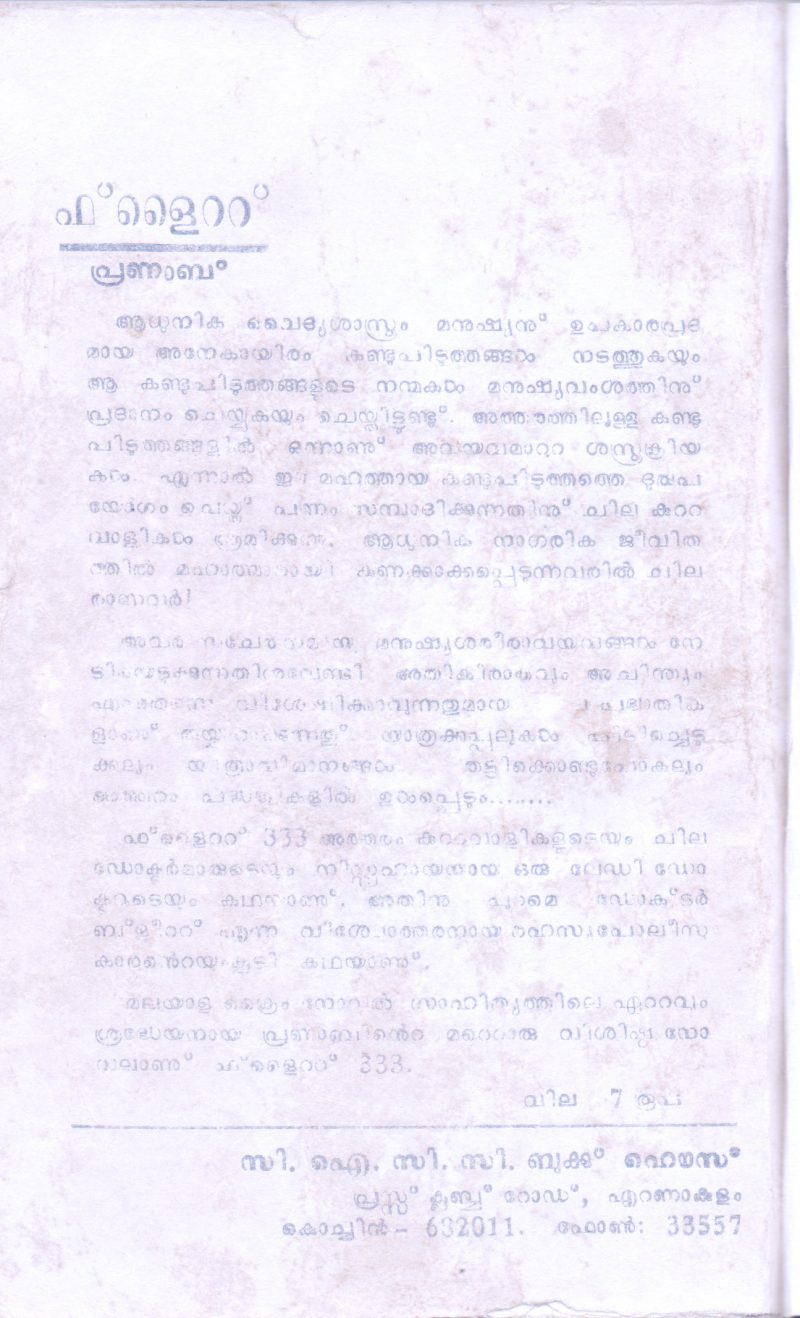 ഫ്ളൈററ്
പ്രണാബ്
ആധുനിക വൈദ്യശാസ്ത്രം മനുഷ്യനു് ഉപകാരപ്രദ
മായ അനേകായിരം കണ്ടുപിടുത്തങ്ങൾ നടത്തുകയും
ആ കണ്ടുപിടുത്തങ്ങളുടെ നന്മകൾ മനുഷ്യവംശത്തിനു്
പ്രദാനം ചെയ്യുകയും ചെയ്തിട്ടുണ്ടു്. അത്തരത്തിലുള്ള കണ്ടു
പിടുത്തങ്ങളിൽ ഒന്നാണു് അവയവമാററ ശസ്ത്രക്രിയ
കൾ. എന്നാൽ ഈ മഹത്തായ കണ്ടുപിടുത്തത്തെ ദുരുപ
യോഗം ചെയ്തു് പണം സമ്പാദിക്കുന്നതിനു് ചില കുററ
വാളികൾ ശ്രമിക്കുന്നു. ആധുനിക നാഗരിക ജീവിത
ത്തിൽ മഹാത്മാരായി കണക്കാക്കപ്പെടുന്നവരിൽ ചില
രാണവർ!
അവർ മനുഷ്യശരീരാവയവങ്ങൾ നേ
ടിയെടുക്കുന്നതിനുവേണ്ടി അതികിരാതവും അചിന്ത്യം
എന്നുതന്നെ വിശേഷിപ്പിക്കാവുന്നതുമായ
ളാണു് യാത്രക്കപ്പലുകൾ പിടിച്ചെടു
ക്കലും യാത്രാവിമാനങ്ങൾ തട്ടിക്കൊണ്ടുപോകലും
പദ്ധതികളിൽ ഉൾപ്പെടും........
ഫ്ളൈററ് 333 അത്തരം കുററവാളികളുടെയും ചില
ഡോക്ടർമാരുടെയും നിസ്സഹായയായ ഒരു ലേഡി ഡോ
ക്ടറുടെയും കഥയാണു്. അതിനു പുറമെ ഡോക്ടർ
ബ്ളീററ് എന്ന രഹസ്യപോലീസു
കാരൻെറയുംകൂടി കഥയാണു്.
മലയാള ക്രൈം നോവൽ സാഹിത്യത്തിലെ ഏററവും
ശ്രദ്ധേയനായ പ്രണാബിൻെറ മറെറാരു വിശിഷ്ട നോ
വലാണു് ഫ്ളൈററ് 333.
വില 7 രൂപ
സി. ഐ. സി. സി. ബുക്ക് ഹൌസ്
പ്രസ്സ് ക്ലബ്ബ് റോഡ്, എറണാകുളം
കൊച്ചിൻ - 682011. ഫോൺ: 33557